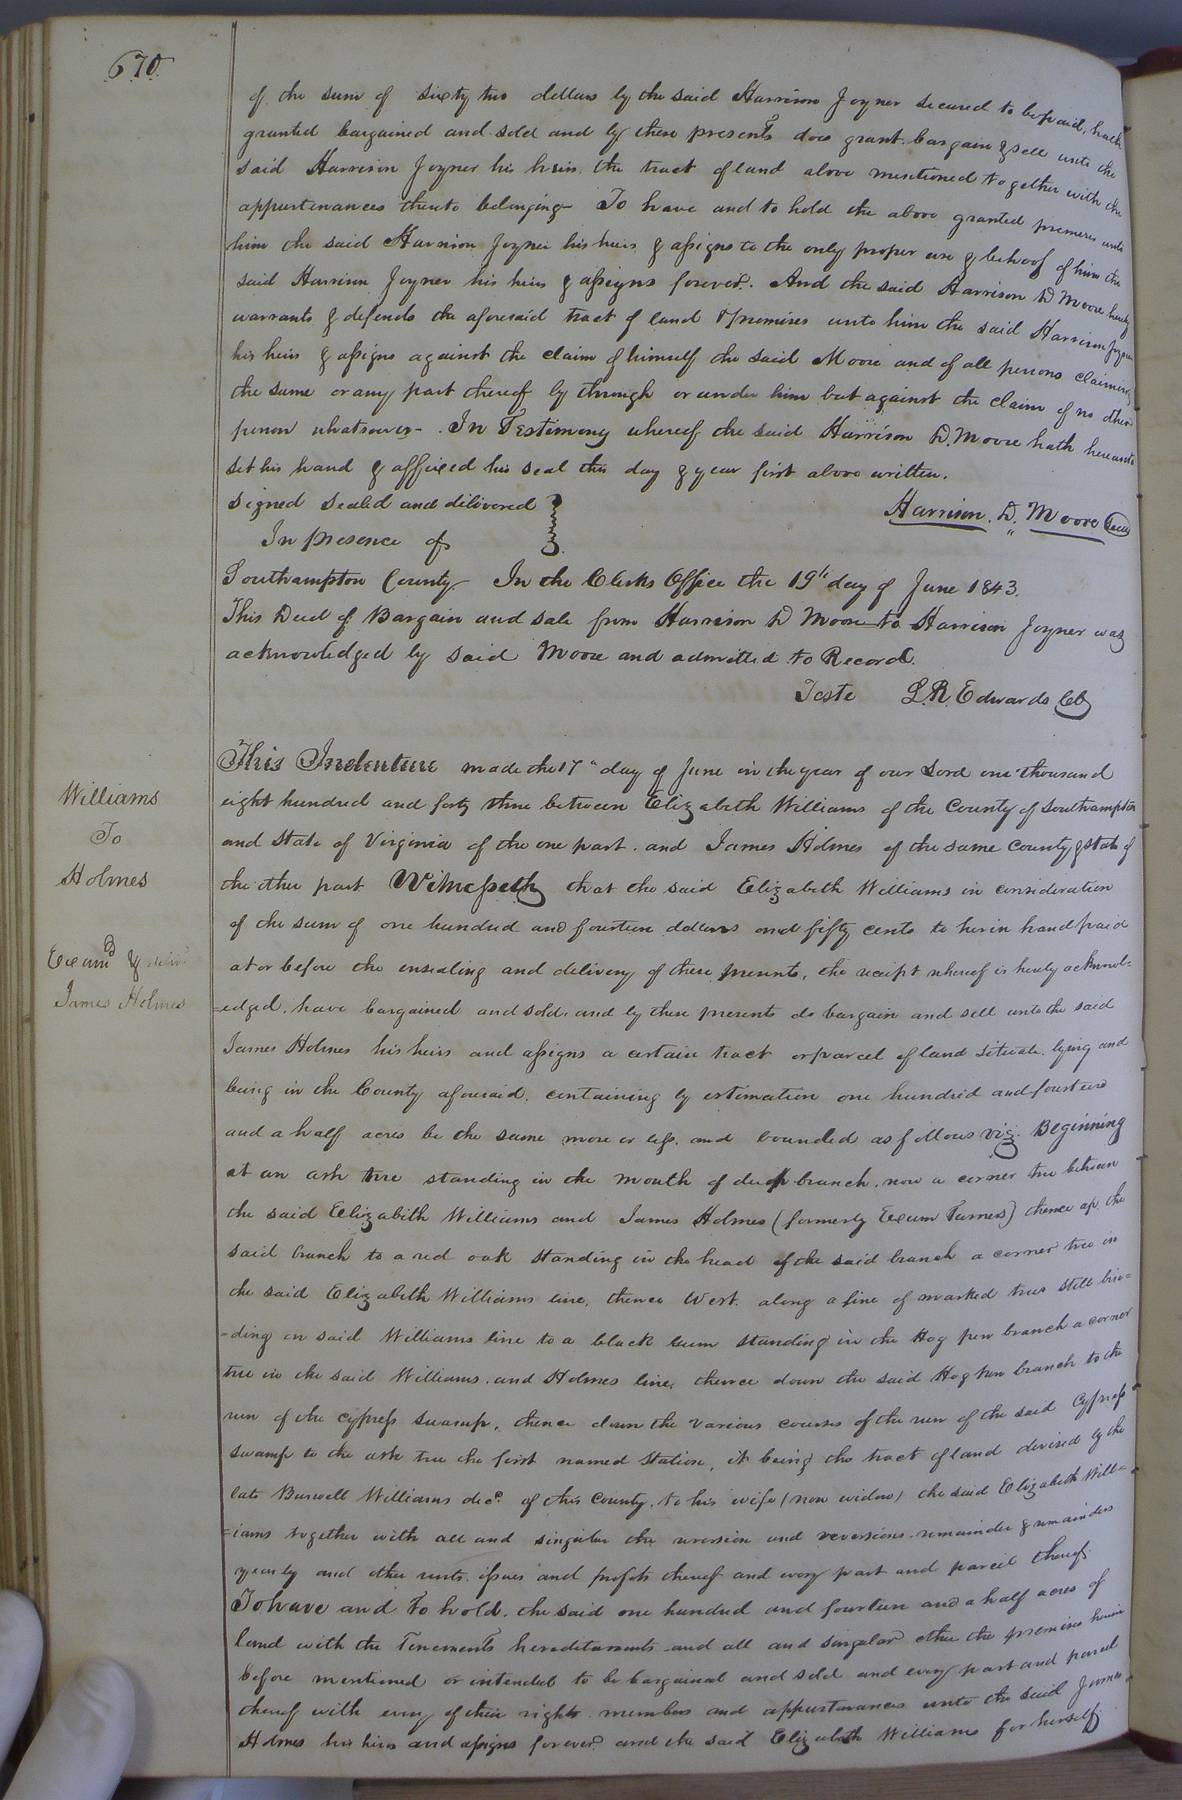 670
of the sum of sixty two dollars by the said Harrison Joyner secured to be paid, hath
granted bargained and sold and by these presents does grant bargain & sell unto the
said Harrison Joyner his heirs the tract of land above mentioned together with the
appurtenances thereto belonging To have and to hold the above granted premises unto
him the said Harrison Joyner his heirs & assigns to the only proper use & behoof of him the
said Harrison Joyner his heirs & assigns forever. And the said Harrison D Moore hereby
warrants & defends the aforesaid tract of land & premises unto him the said Harrison Joyner
his heirs & assigns against the claim of himself the said Moore and of all persons claiming
the same or any part thereof by through or under him but against the claim of no other
person whatsoever. In Testimony whereof the said Harrison D. Moore hath hereunto
set his hand & affixed his seal this day & year first above written.
Signed sealed and delivered
In presence of
Harrison. D. Moore Seal
Southampton County. In the Clerks Office the 19th day of June 1843.
This Deed of Bargain and sale from Harrison D Moore to Harrison Joyner was
acknowledged by said Moore and admitted to Record.
Teste L. R. Edwards Clk
Williams
To
Holmes
Exumd & deliv
James Holmes
This Indenture made the 17th day of June in the year of our Lord one thousand
eight hundred and forty three between Elizabeth Williams of the County of Southampton
and State of Virginia of the one part. and James Holmes of the same County & State of
the other part Witnesseth that the said Elizabeth Williams in consideration
of the sum of one hundred and fourteen dollars and fifty cents to her in hand paid
at or before the ensealing and delivery of these presents, the receipt whereof is hereby acknowl=
=edged, have bargained and sold, and by these presents do bargain and sell unto the said
James Holmes his heirs and assigns a certain tract or parcel of land situate, lying and
being in the County aforesaid, containing by estimation one hundred and fourteen
and a half acres be the same more or less, and bounded as follows viz. Beginning
at an ash tree standing in the mouth of deep branch, now a corner tree between
the said Elizabeth Williams and James Holmes (formerly Exum Turners) thence up the
said branch to a red oak standing in the head of the said branch a corner tree in
the said Elizabeth Williams line, thence West. along a line of marked trees still bin=
=ding on said Williams line to a black Gum standing in the Hog pen branch a corner
tree in the said Williams. and Holmes line, thence down the said Hog pen branch to the
run of the cypress swamp, thence down the various courses of the run of the said Cypress
swamp to the ash tree the first named station, it being the tract of land devised by the
late Burwell Williams decd. of this County, to his wife (now widow) the said Elizabeth Will=
=iams together with all and singular the reversion and reversions remainder & remainders
yearly and other rents. issues and profits thereof and every part and parcel thereof.
To have and To hold, the said one hundred and fourteen and a half acres of
land with the Tenements hereditaments and all and singular other the premises herein
before mentioned or intended to be bargained and sold and every part and parcel
thereof with every of their rights members and appurtenances unto the said James
Holmes his heirs and assigns forever and the said Elizabeth Williams for herself